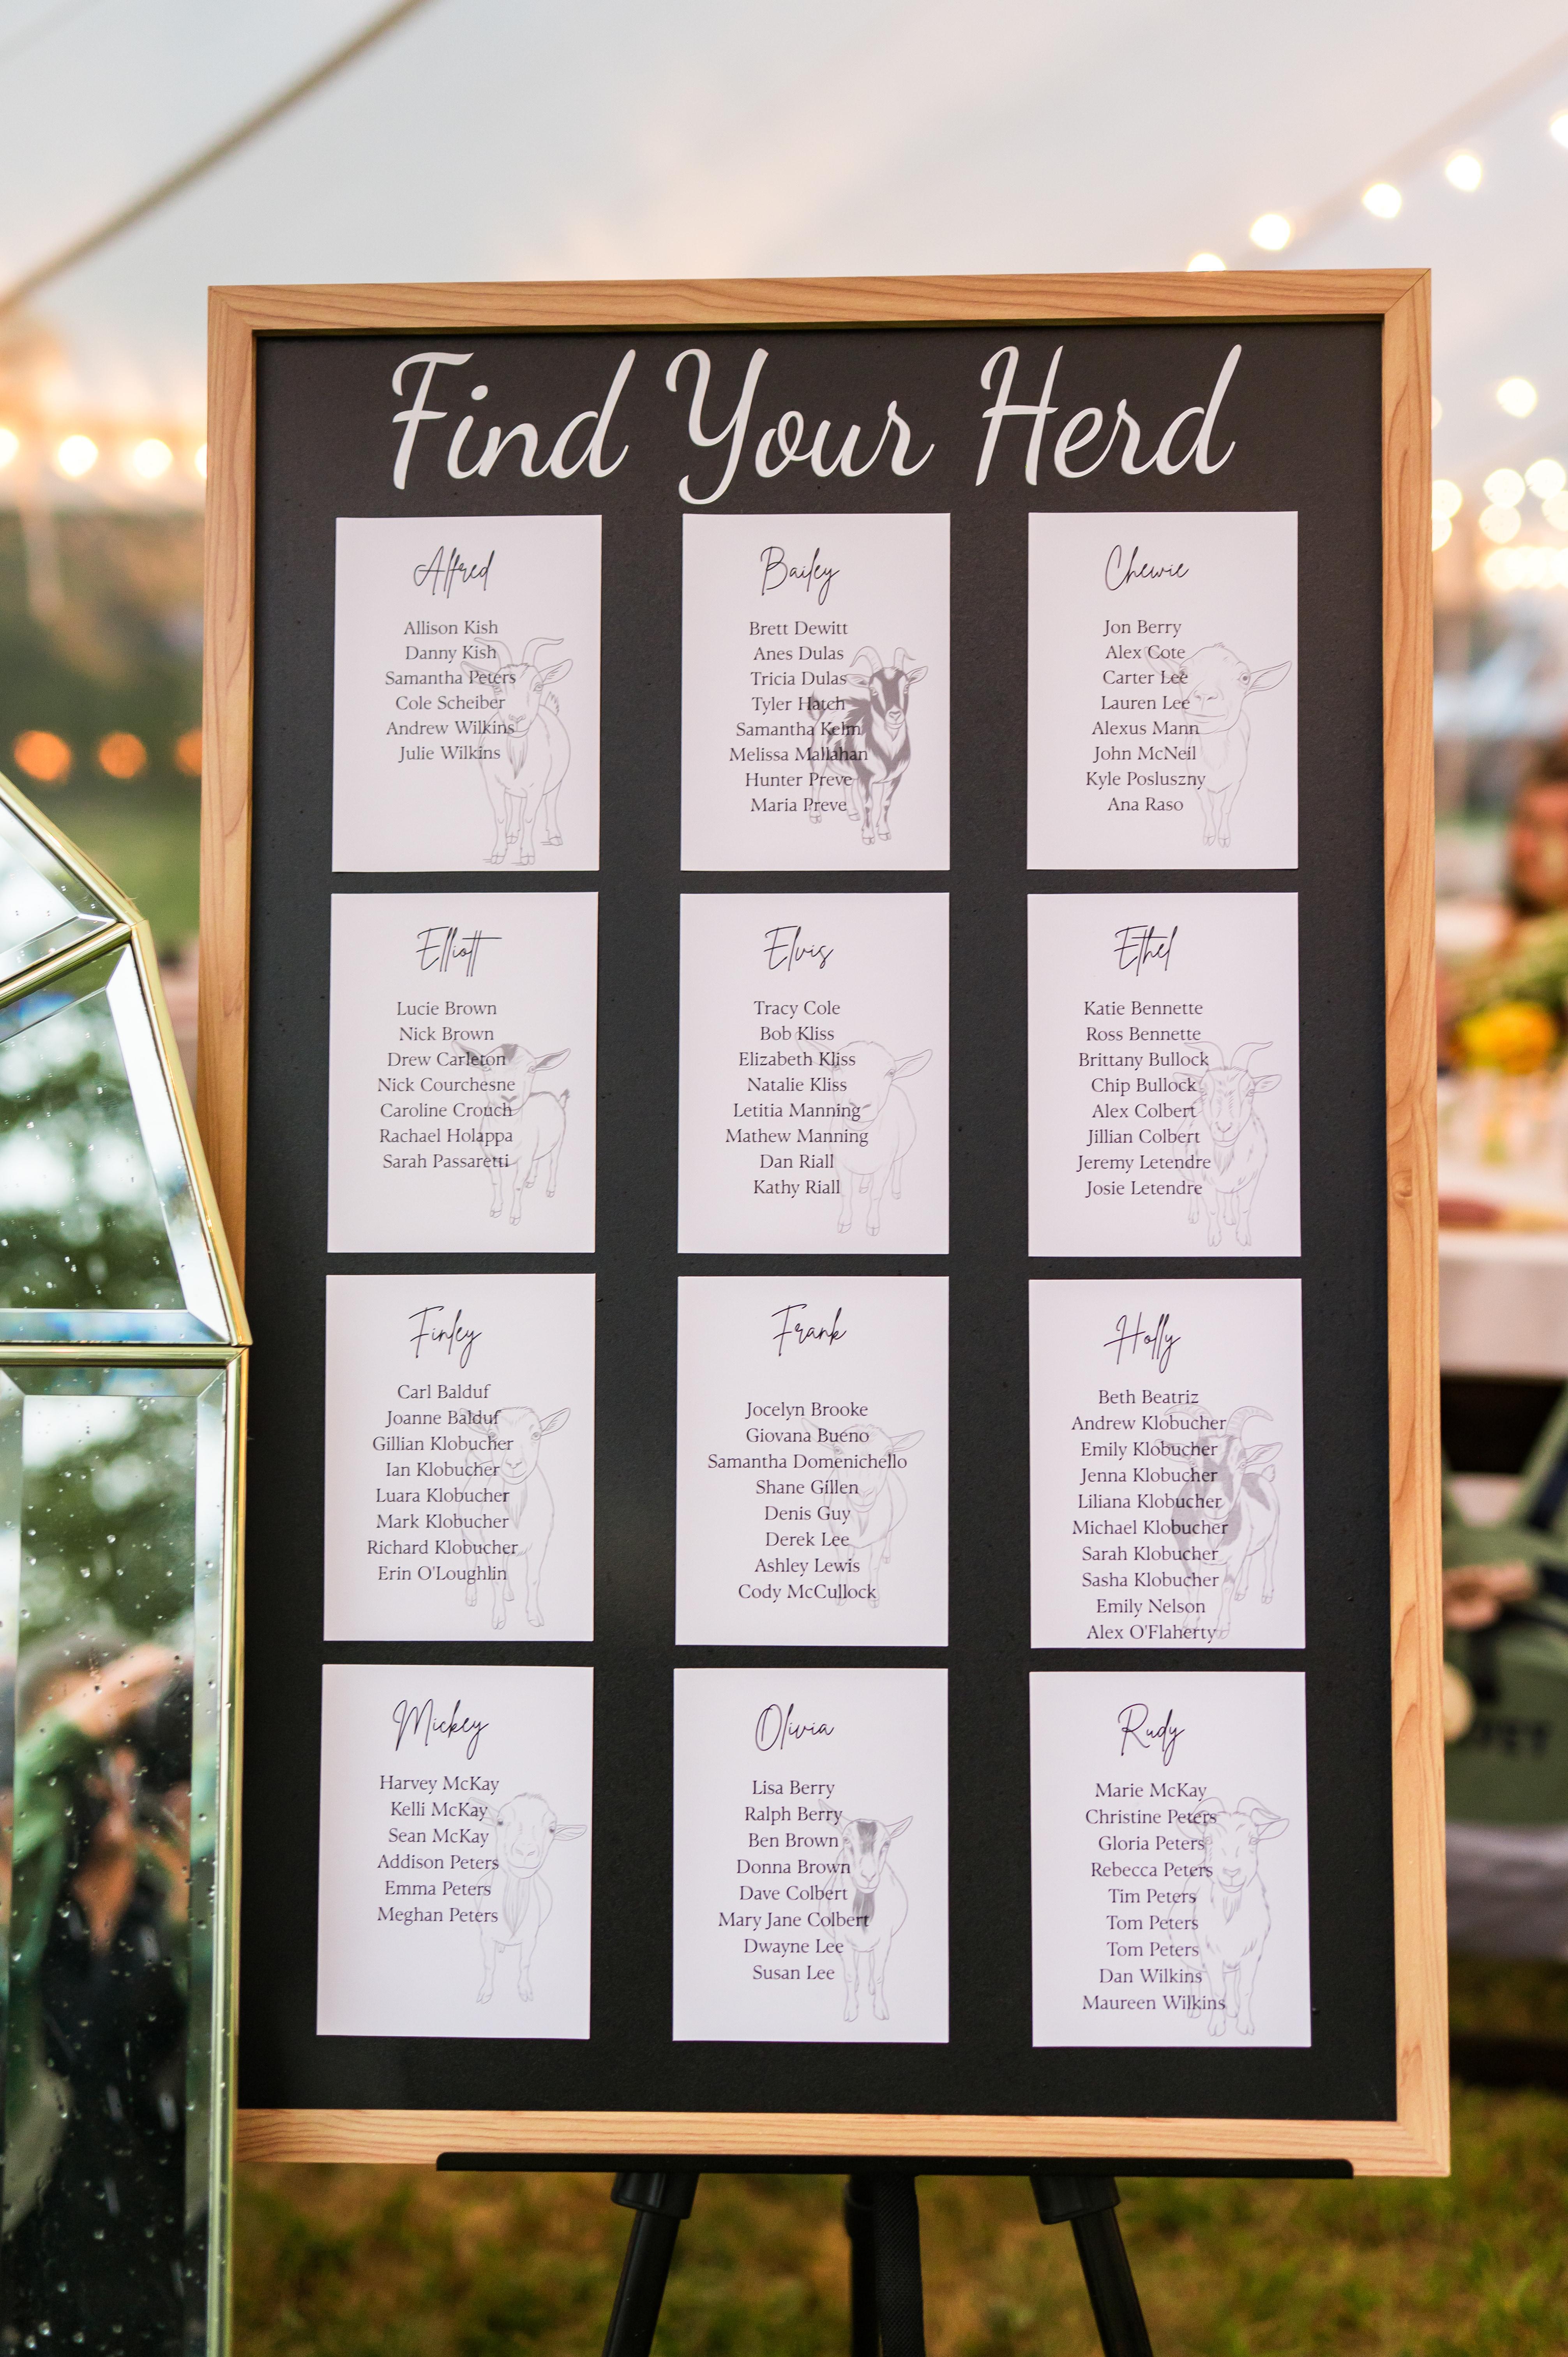 Find Your Herd
Alfred
Allison Kish
Danny Kish
Samantha Peters
Cole Scheiber
Andrew Wilkins
Julie Wilkins
Bailey
Brett Dewitt
Anes Dulas
Tricia Dulas
Tyler Hatch
Samantha Kelm
Melissa Mallahan
Hunter Preve
Maria Preve
Chewie
Jon Berry
Alex Cote
Carter Lee
Lauren Lee
Alexus Mann
John McNeil
Kyle Posluszny
Ana Raso
Elliott
Lucie Brown
Nick Brown
Drew Carleton
Nick Courchesne
Caroline Crouch
Rachael Holappa
Sarah Passaretti
Elvis
Tracy Cole
Bob Kliss
Elizabeth Kliss
Natalie Kliss
Letitia Manning
Mathew Manning
Dan Riall
Kathy Riall
Ethel
Katie Bennette
Ross Bennette
Brittany Bullock
Chip Bullock
Alex Colbert
Jillian Colbert
Jeremy Letendre
Josie Letendre
Finley
Carl Balduf
Joanne Balduf
Gillian Klobucher
Ian Klobucher
Luara Klobucher
Mark Klobucher
Richard Klobucher
Erin O'Loughlin
Frank
Jocelyn Brooke
Giovana Bueno
Samantha Domenichello
Shane Gillen
Denis Guy
Derek Lee
Ashley Lewis
Cody McCullock
Holly
Beth Beatriz
Andrew Klobucher
Emily Klobucher
Jenna Klobucher
Liliana Klobucher
Michael Klobucher
Sarah Klobucher
Sasha Klobucher
Emily Nelson
Alex O'Flaherty
Mickey
Harvey McKay
Kelli McKay
Sean McKay
Addison Peters
Emma Peters
Meghan Peters
Olivia
Lisa Berry
Ralph Berry
Ben Brown
Donna Brown
Dave Colbert
Mary Jane Colbert
Dwayne Lee
Susan Lee
Rudy
Marie McKay
Christine Peters
Gloria Peters
Rebecca Peters
Tim Peters
Tom Peters
Tom Peters
Dan Wilkins
Maureen Wilkins